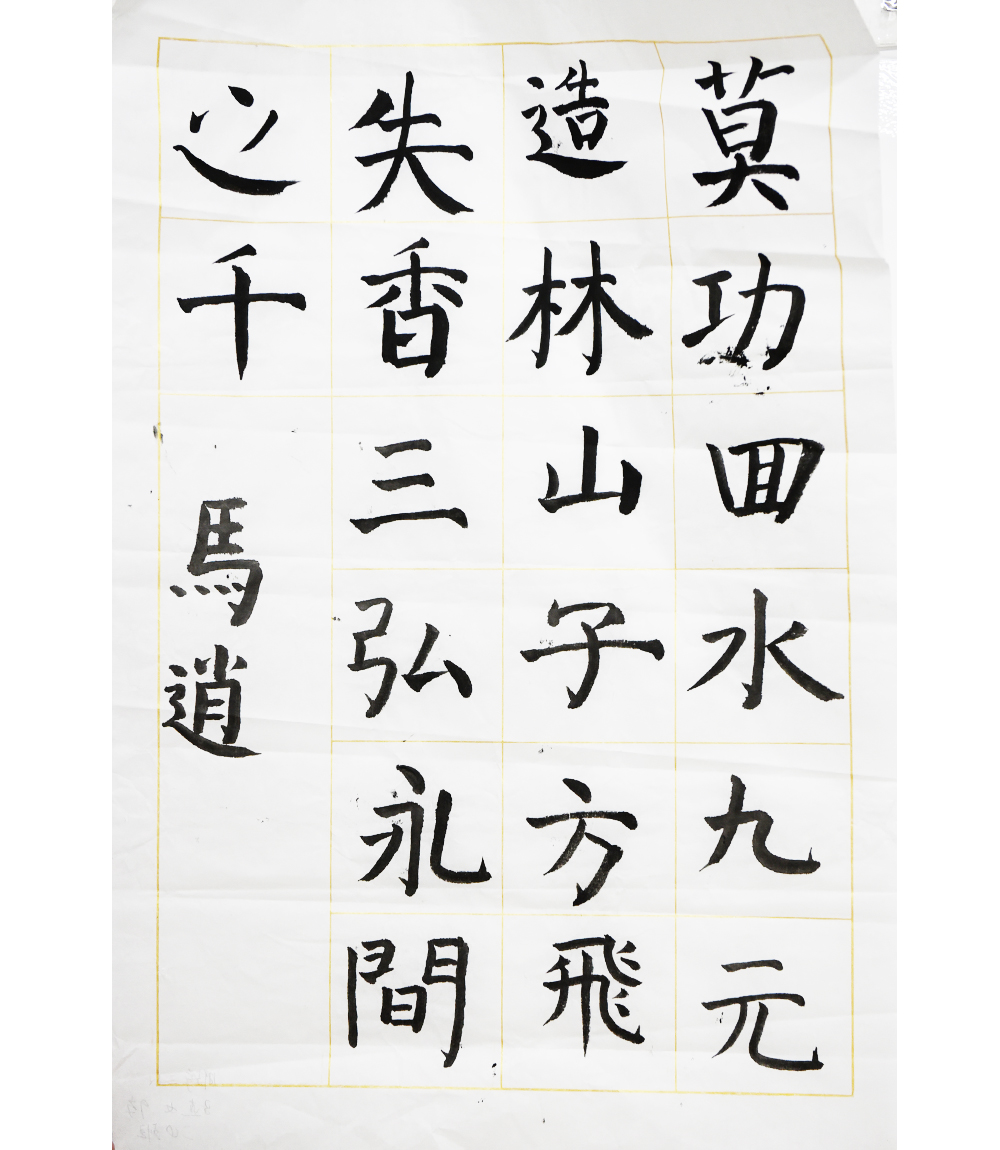 莫功回水九元
造林山子方飛
失香三弘礼間
之千
馬逍